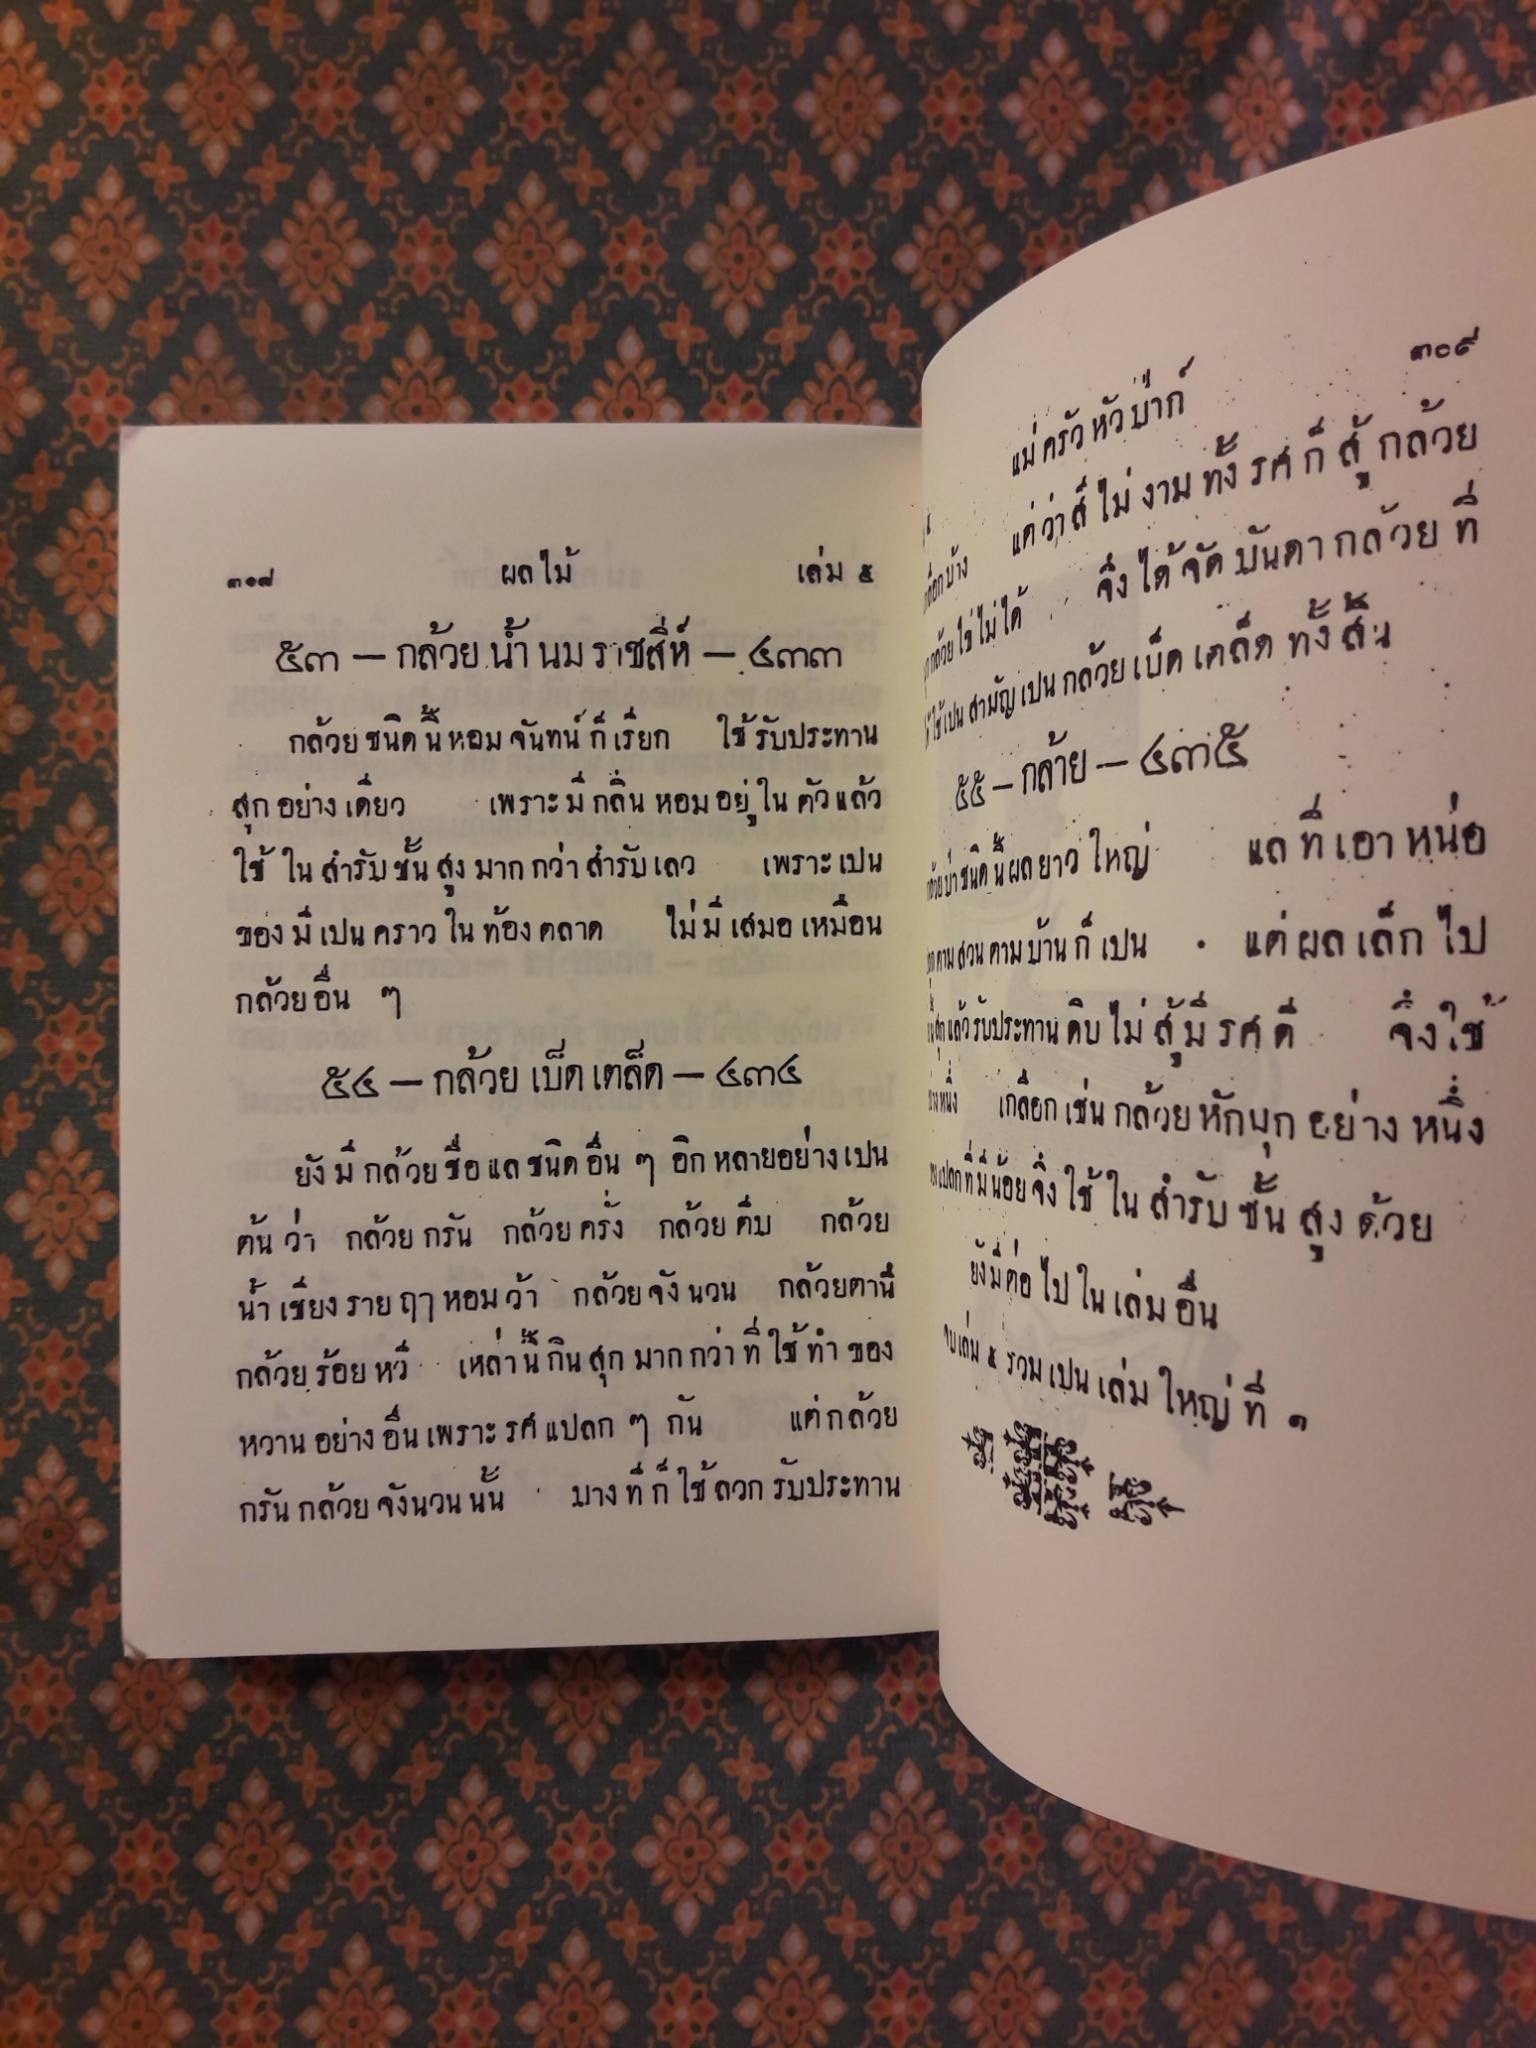 ๓๐๘ ผลไม้ เล่ม ๕
๕๓ — กล้วยน้ำนมราชสีห์ — ๔๓๓
กล้วยชนิดนี้หอมจันทน์ก็เรียก ใช้รับประทาน
สุกอย่างเดียว เพราะมีกลิ่นหอมอยู่ในตัวแล้ว
ใช้ในสำรับชั้นสูงมากกว่าสำรับเลว เพราะเปน
ของมีเปนคราวในท้องตลาด ไม่มีเสมอเหมือน
กล้วยอื่น ๆ
๕๔ — กล้วยเบ็ดเตล็ด — ๔๓๔
ยังมีกล้วยชื่อแลชนิดอื่น ๆ อิกหลายอย่างเปน
ต้นว่า กล้วยกรัน กล้วยครั่ง กล้วยตีบ กล้วย
น้ำเชียงราย ฤๅหอมว้า กล้วยจังนวน กล้วยตานี
กล้วยร้อยหวี เหล่านี้กินสุกมากกว่าที่ใช้ทำของ
หวานอย่างอื่นเพราะรศแปลก ๆ กัน แต่กล้วย
กรันกล้วยจังนวนนั้น บางทีก็ใช้ลวกรับประทาน
๓๐๙
แม่ครัวหัวป่าก์
เกลือกบ้าง แต่ว่าสีไม่งามทั้งรศก็สู้กล้วย
กล้วยไข่ไม่ได้ จึงได้จัดบันดากล้วยที่
ใช้เปนสามัญเปนกล้วยเบ็ดเตล็ดทั้งสิ้น
๕๕ — กล้าย — ๔๓๕
กล้วยป่าชนิดนี้ผลยาวใหญ่ แลที่เอาหน่อ
ตามสวนตามบ้านก็เปน แต่ผลเล็กไป
สุกแล้วรับประทานดิบไม่สู้มีรศดี จึงใช้
หนึ่ง เกลือกเช่นกล้วยหักมุกอย่างหนึ่ง
แปลกที่มีน้อยจึงใช้ในสำรับชั้นสูงด้วย
ยังมีต่อไปในเล่มอื่น
เล่ม ๕ รวมเปนเล่มใหญ่ที่ ๑